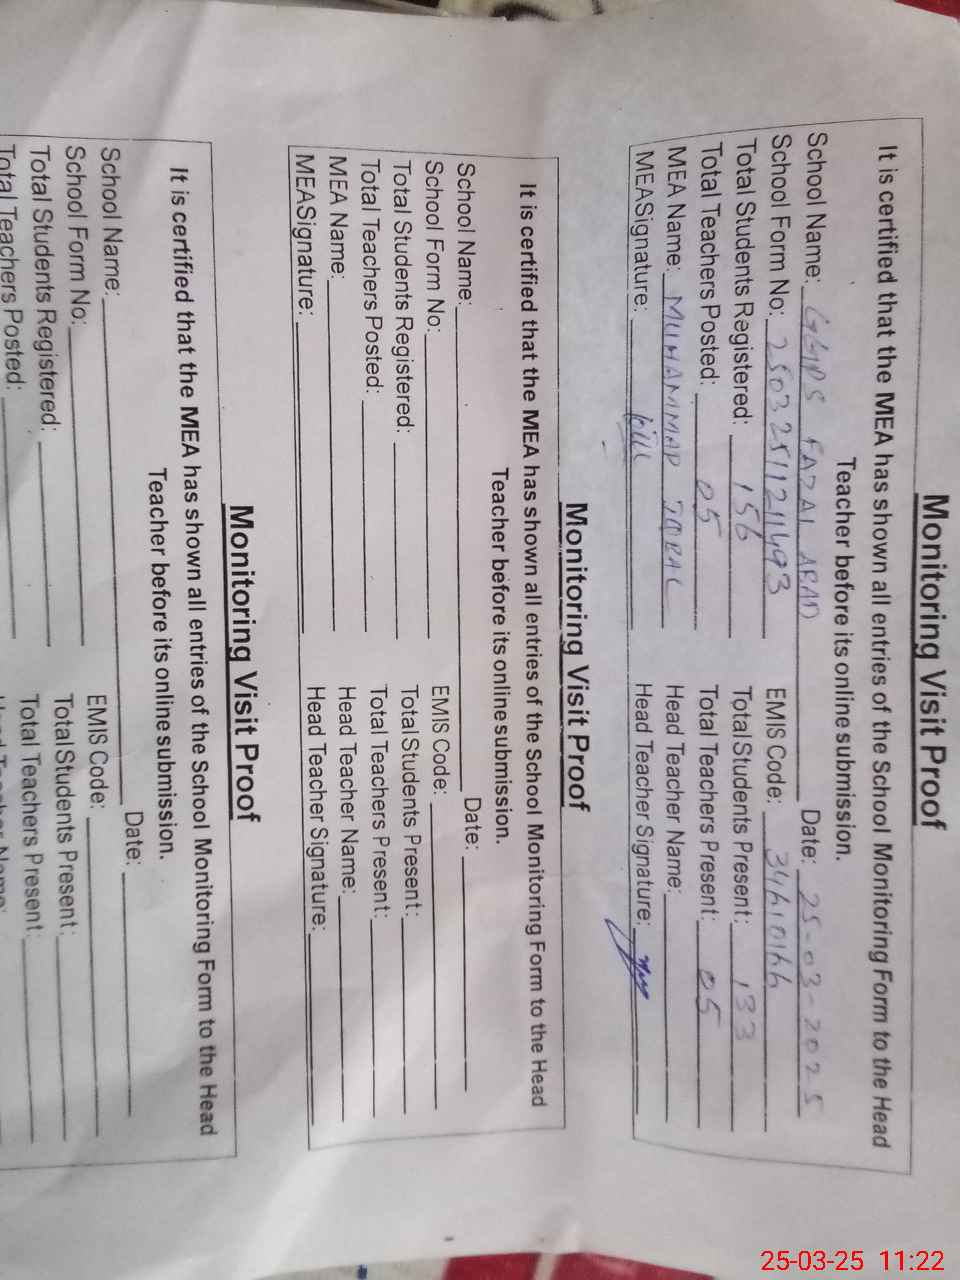 Monitoring Visit Proof
It is certified that the MEA has shown all entries of the School Monitoring Form to the Head
Teacher before its online submission.
School Name: GGPS FAZAL ABAD Date: 25-03-2025
School Form No: EMIS Code: 34610166
Total Students Registered: 156 Total Students Present: 133
Total Teachers Posted: 05 Total Teachers Present: 05
MEA Name: MUHAMMAD IQBAL Head Teacher Name:
MEASignature: Head Teacher Signature:
Monitoring Visit Proof
It is certified that the MEA has shown all entries of the School Monitoring Form to the Head
Teacher before its online submission.
School Name: Date:
School Form No: EMIS Code:
Total Students Registered: Total Students Present:
Total Teachers Posted: Total Teachers Present:
MEA Name: Head Teacher Name:
MEASignature: Head Teacher Signature:
Monitoring Visit Proof
It is certified that the MEA has shown all entries of the School Monitoring Form to the Head
Teacher before its online submission.
School Name: Date:
School Form No: EMIS Code:
Total Students Registered: Total Students Present:
Total Teachers Posted: Total Teachers Present:
25-03-25 11:22